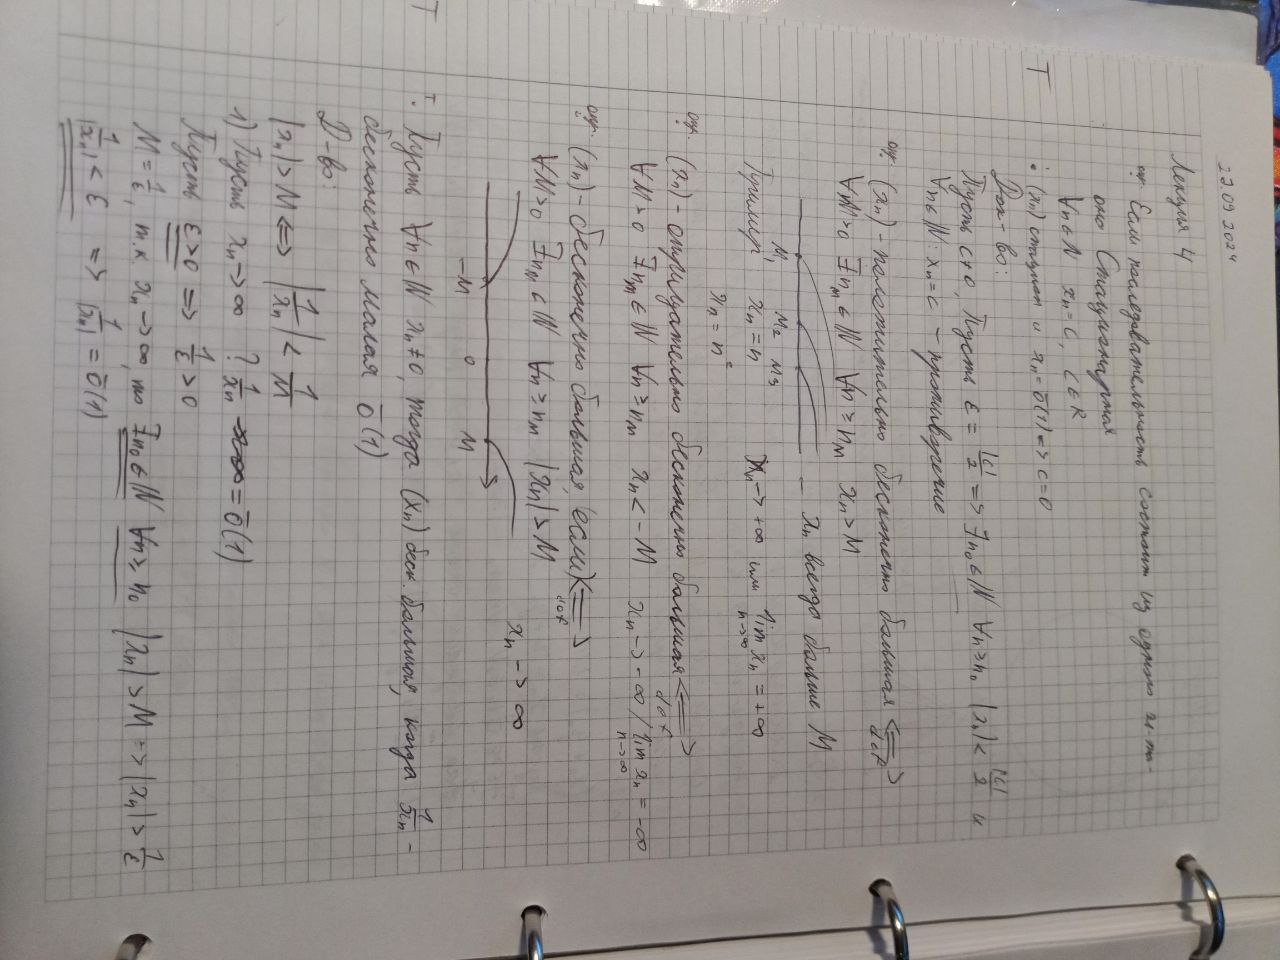 27.09.2024
Лекция 4
опр. Если последовательность состоит из одного эл-та -
она Стационарная
∀n∈N xₙ = c, c∈R
Т (xₙ) стацион и xₙ = ō(1) => c=0
Док-во:
Пусть c≠0, Пусть ε = |c|/2 => ∃n₀∈ℕ ∀n≥n₀ |xₙ| < |c|/2 и
∀n∈ℕ: xₙ=c - противоречие
опр. (xₙ) - положительно бесконечно большая <=> def
∀M>0 ∃n_M∈ℕ ∀n≥n_M xₙ>M
- xₙ всегда больше M
M₁ M₂ M₃
Пример xₙ = n xₙ -> +∞ или lim n->∞ xₙ = +∞
xₙ = n²
опр. (xₙ) - отрицательно бесконечно большая <=> def
∀M>0 ∃n_M∈ℕ ∀n≥n_M xₙ < -M xₙ -> -∞ / lim n->∞ xₙ = -∞
опр. (xₙ) - бесконечно большая, (если) <=> def
∀M>0 ∃n_M∈ℕ ∀n≥n_M |xₙ|>M
xₙ -> ∞
-M 0 M
Т Т. Пусть ∀n∈ℕ xₙ≠0, тогда (xₙ) беск. большая, когда 1/xₙ -
бесконечно малая ō(1)
Д-во:
|xₙ|>M <=> |1/xₙ| < 1/M
1) Пусть xₙ->∞ ? 1/xₙ = ō(1)
Пусть ε>0 => 1/ε > 0
M = 1/ε, т.к. xₙ->∞, то ∃n₀∈ℕ ∀n≥n₀ |xₙ|>M => |xₙ| > 1/ε
1/|xₙ| < ε => 1/|xₙ| = ō(1)